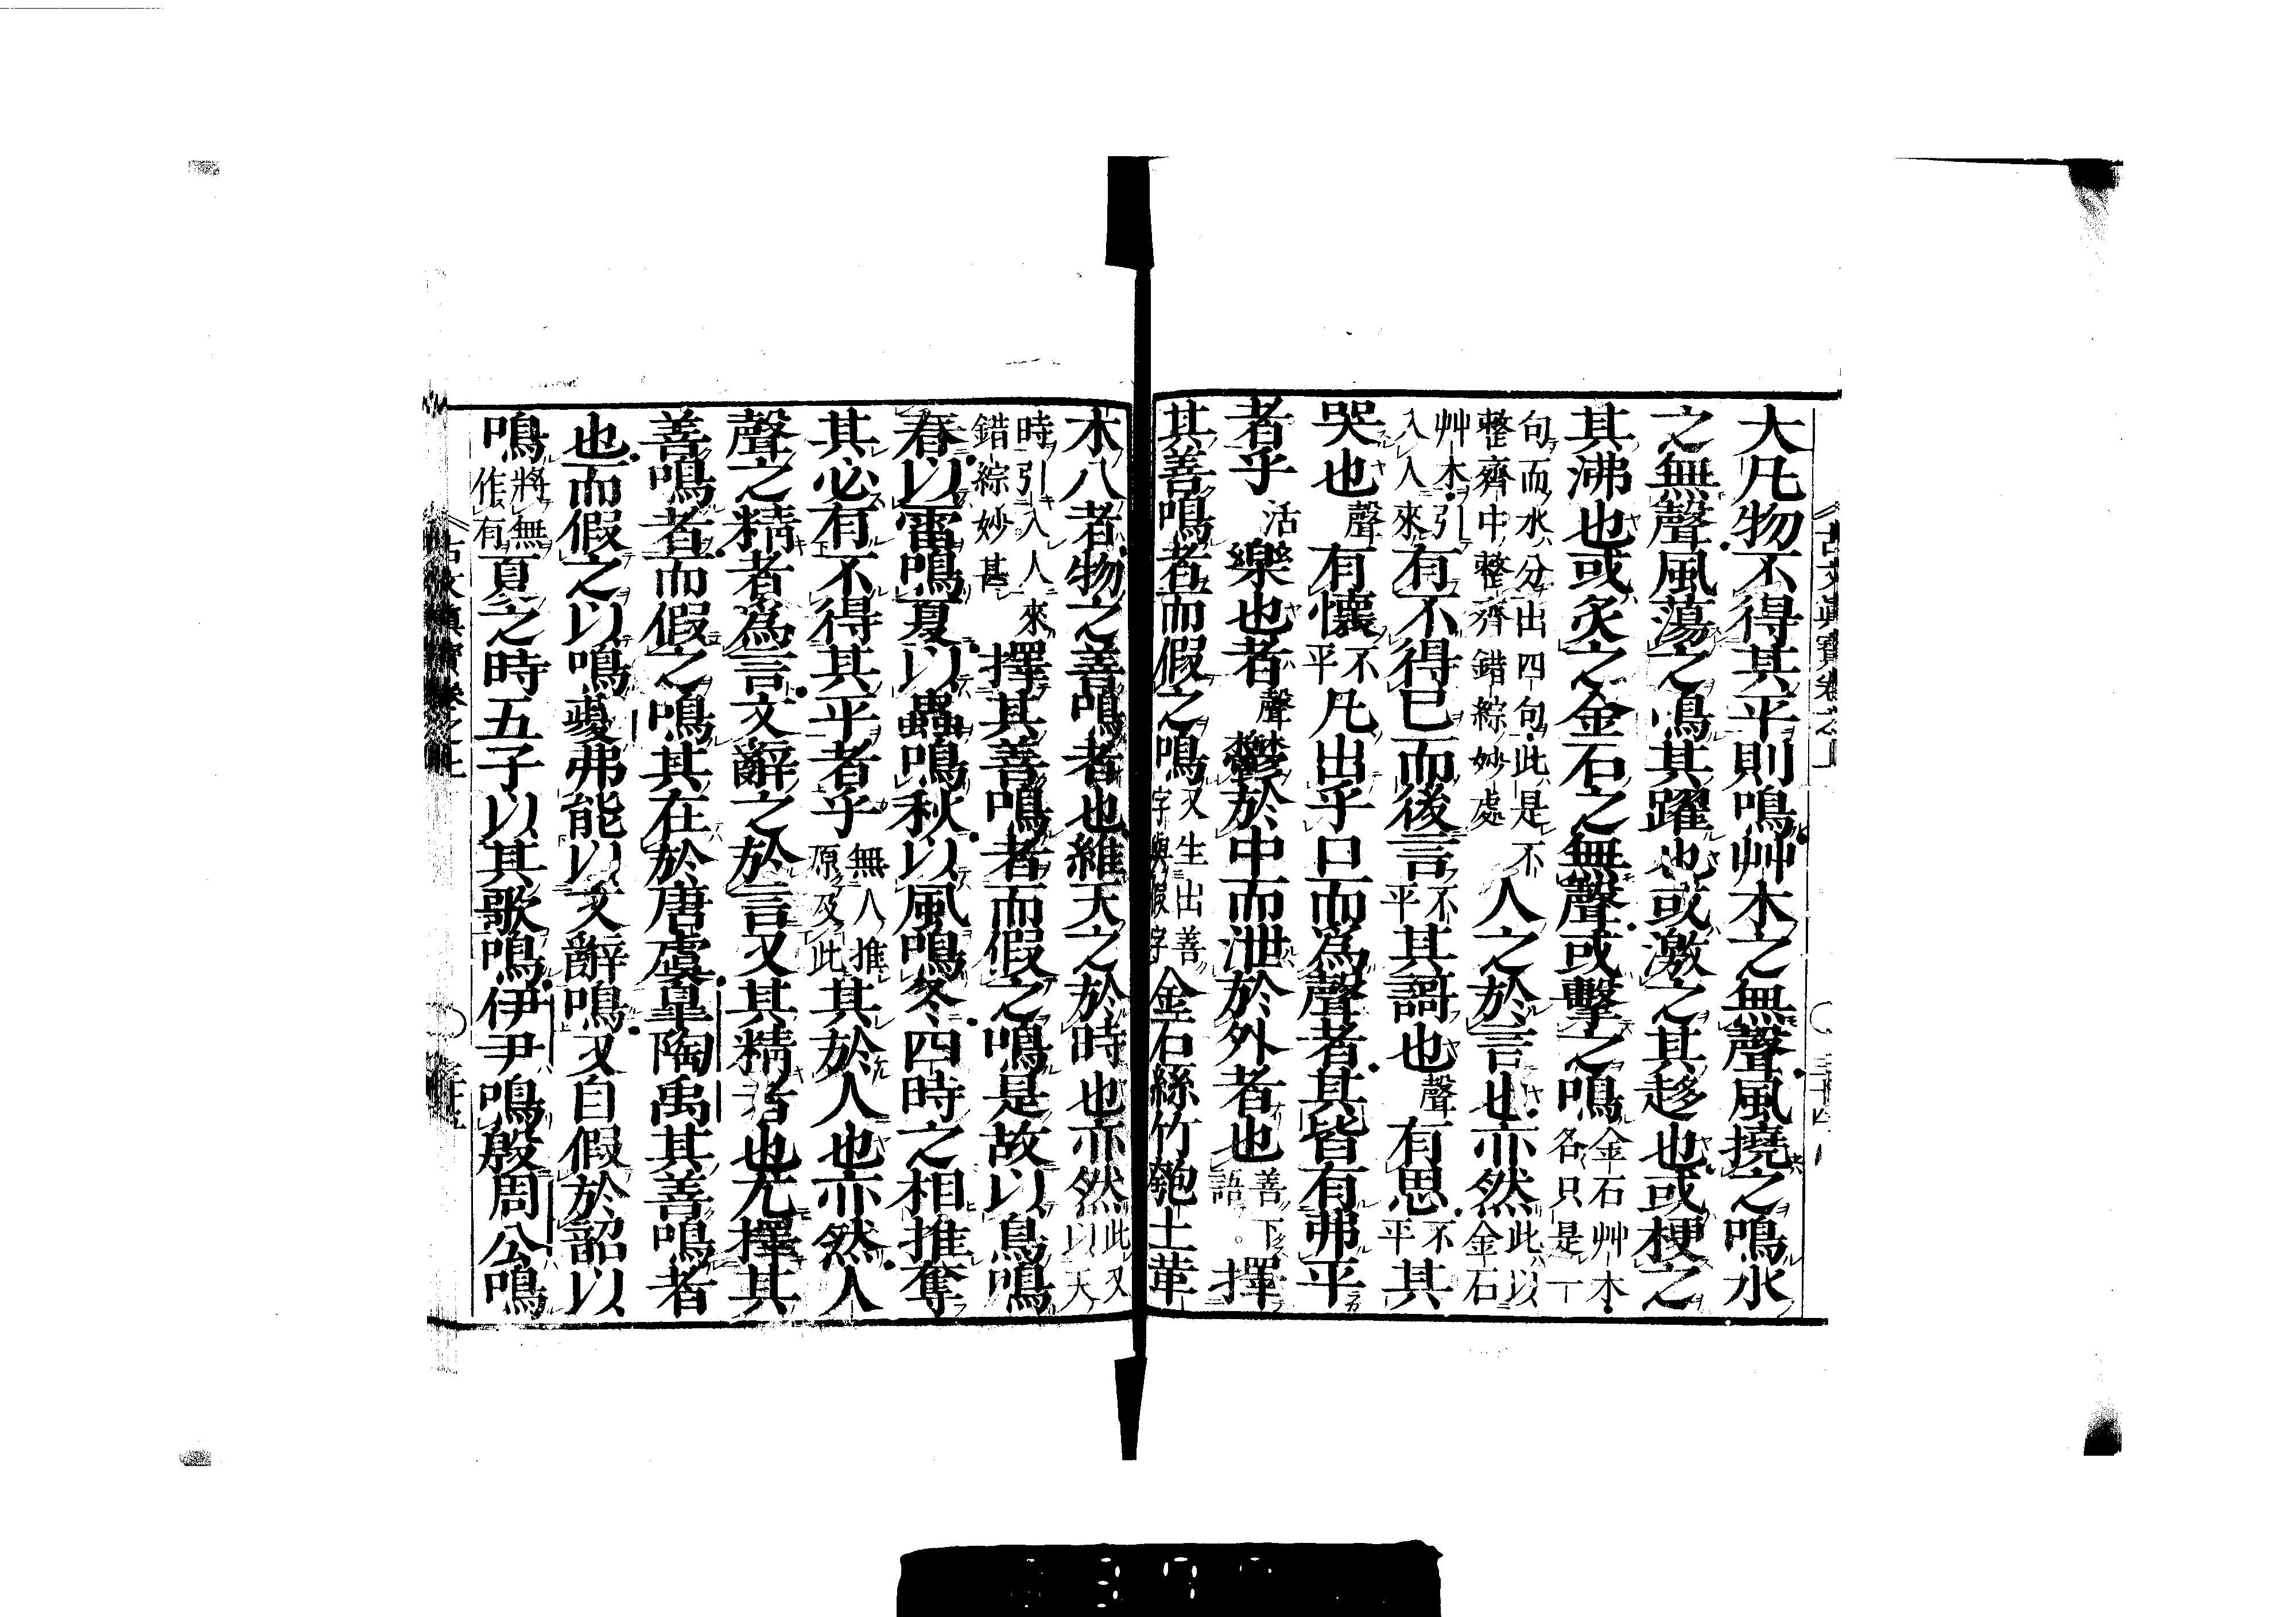 古文眞寳卷之上
大凡物不得其平則鳴艸木之無聲風撓之鳴水
之無聲風蕩之鳴其躍也或激之其趍也或梗之
其沸也或炙之金石之無聲或擊之鳴金石艸木各只是一
句而水分出四句此是不整齊中整齊錯綜妙處人之於言也亦然此以金石
艸木引入人來有不得已而後言不平其謌也聲有思不平其
哭也聲有懷不平凡出乎口而爲聲者其皆有弗平
者乎活樂也者聲鬱於中而泄於外者也善下語擇
其善鳴者而假之鳴又生出善字與假字金石絲竹匏土革
木八者物之善鳴者也維天之於時也亦然此又以天
時引入人來錯綜妙甚擇其善鳴者而假之鳴是故以鳥鳴
春以雷鳴夏以蟲鳴秋以風鳴冬四時之相推奪
其必有不得其平者乎無人推原及此其於人也亦然人
聲之精者爲言文辭之於言又其精者也尤擇其
善鳴者而假之鳴其在於唐虞皐陶禹其善鳴者
也而假之以鳴夔弗能以文辭鳴又自假於韶以
鳴將無作有夏之時五子以其歌鳴伊尹鳴殷周公鳴
古文眞寳卷之上